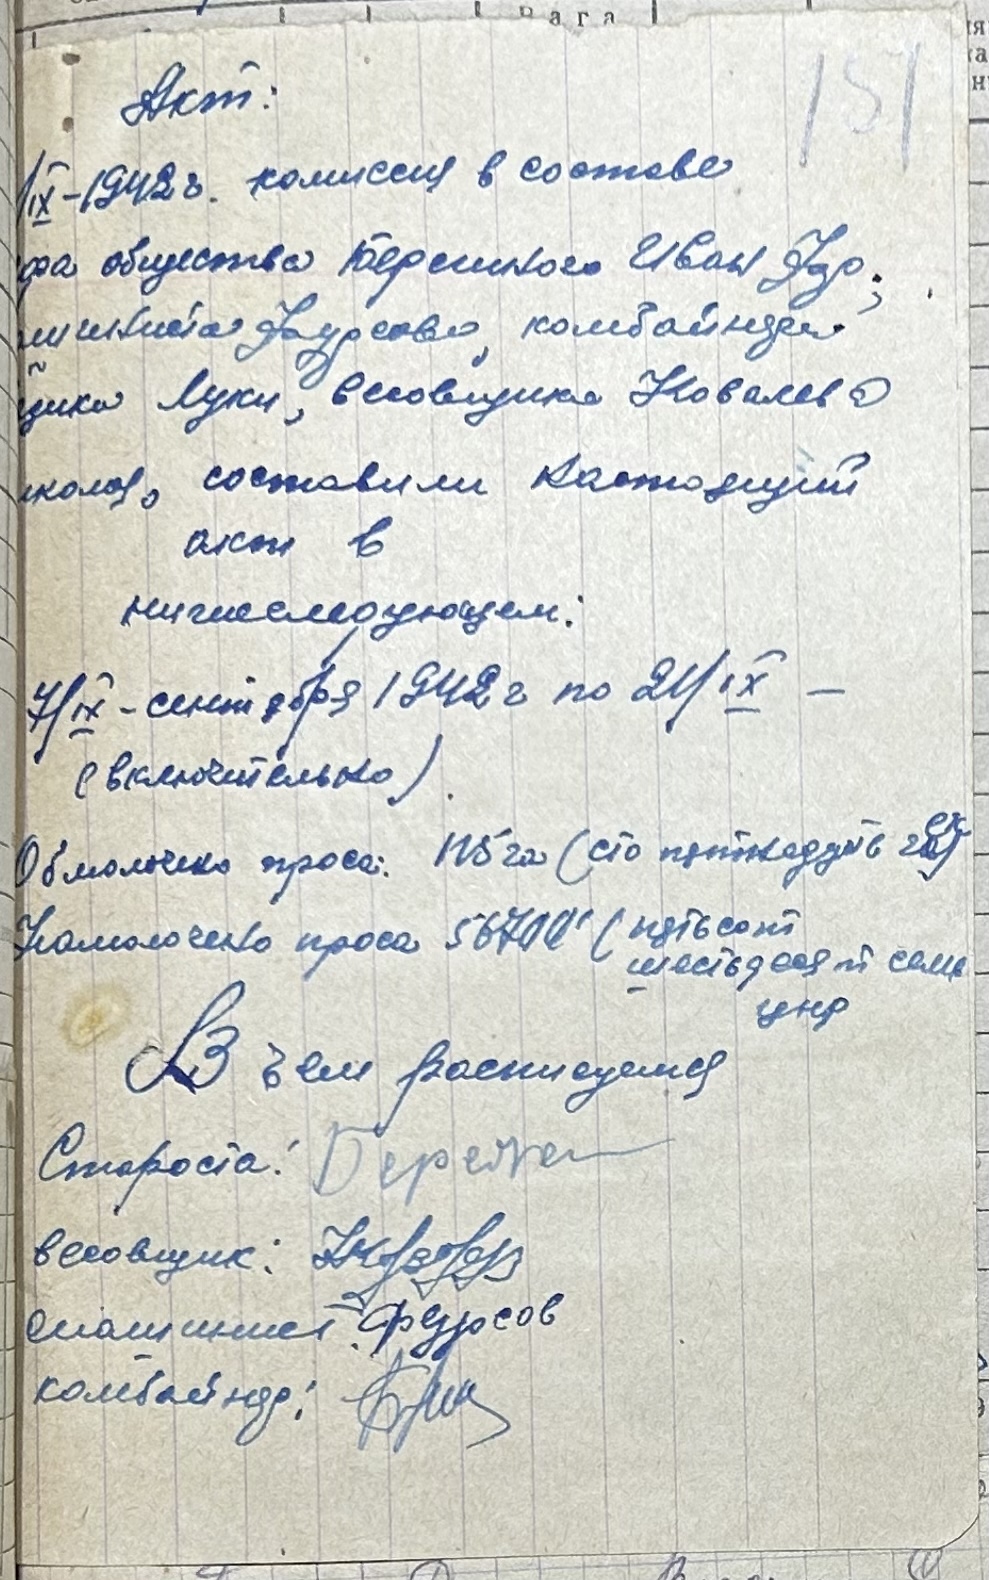 Вага
151
Акт:
/IX-1942 г. комиссия в составе
общества Иван
Фурсова, комбайнера
щика Луки, весовщика Ковалева
составили настоящий
акт в
нижеследующем:
7/IX-сентября 1942 г по 21/IX –
(включительно).
Обмолочено проса: 115 га (сто пятнадцать га)
Намолочено проса 567 (пятьсот
шестьдесят семь
цнр
В чем расписуемся
Староста:
весовщик:
машинист: Фурсов
комбайнер: